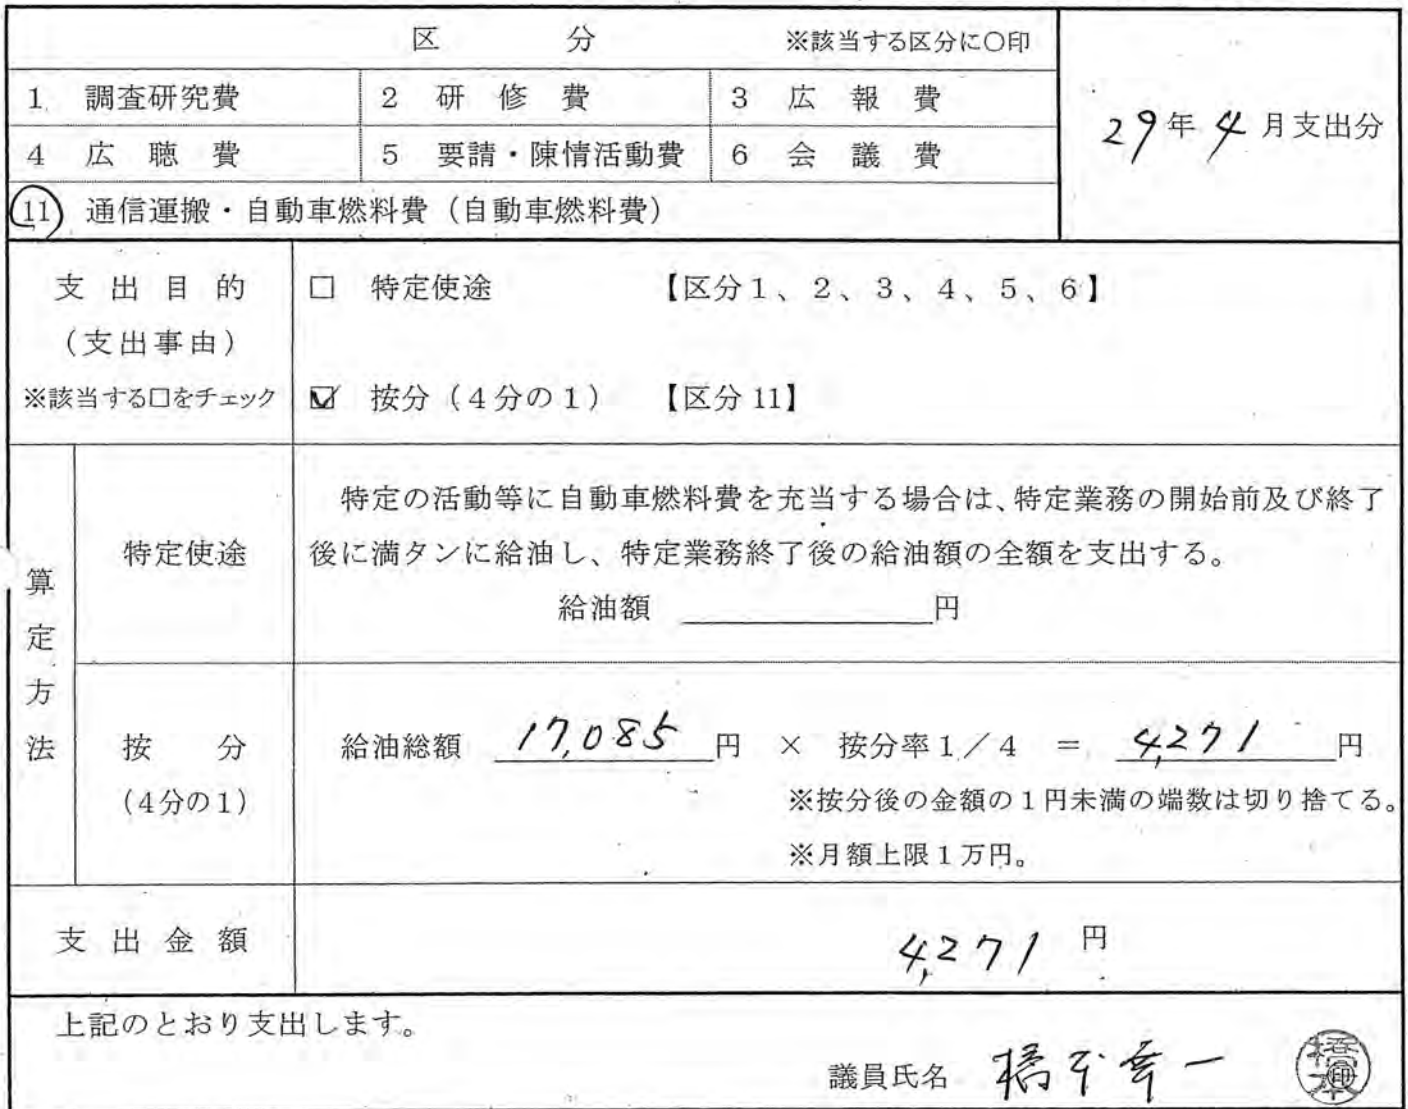 区 分 ※該当する区分に○印
1 調査研究費 2 研 修 費 3 広 報 費
29年4月支出分
4 広 聴 費 5 要請・陳情活動費 6 会 議 費
11 通信運搬・自動車燃料費(自動車燃料費)
支 出 目 的
(支出事由)
※該当する□をチェック
□ 特定使途 【区分1、2、3、4、5、6】
☑ 按分(4分の1) 【区分11】
算定方法
特定使途
特定の活動等に自動車燃料費を充当する場合は、特定業務の開始前及び終了
後に満タンに給油し、特定業務終了後の給油額の全額を支出する。
給油額 円
按 分
(4分の1)
給油総額 17,085 円 × 按分率1/4 = 4,271 円
※按分後の金額の1円未満の端数は切り捨てる。
※月額上限1万円。
支 出 金 額 4,271 円
上記のとおり支出します。
議員氏名 橋本幸一 橋本 印